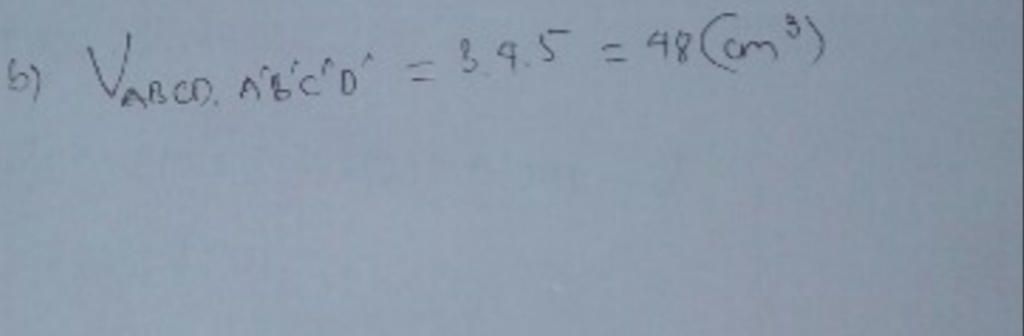 b) V_ABCD.A'B'C'D' = 3.4.5 = 48 (cm³)